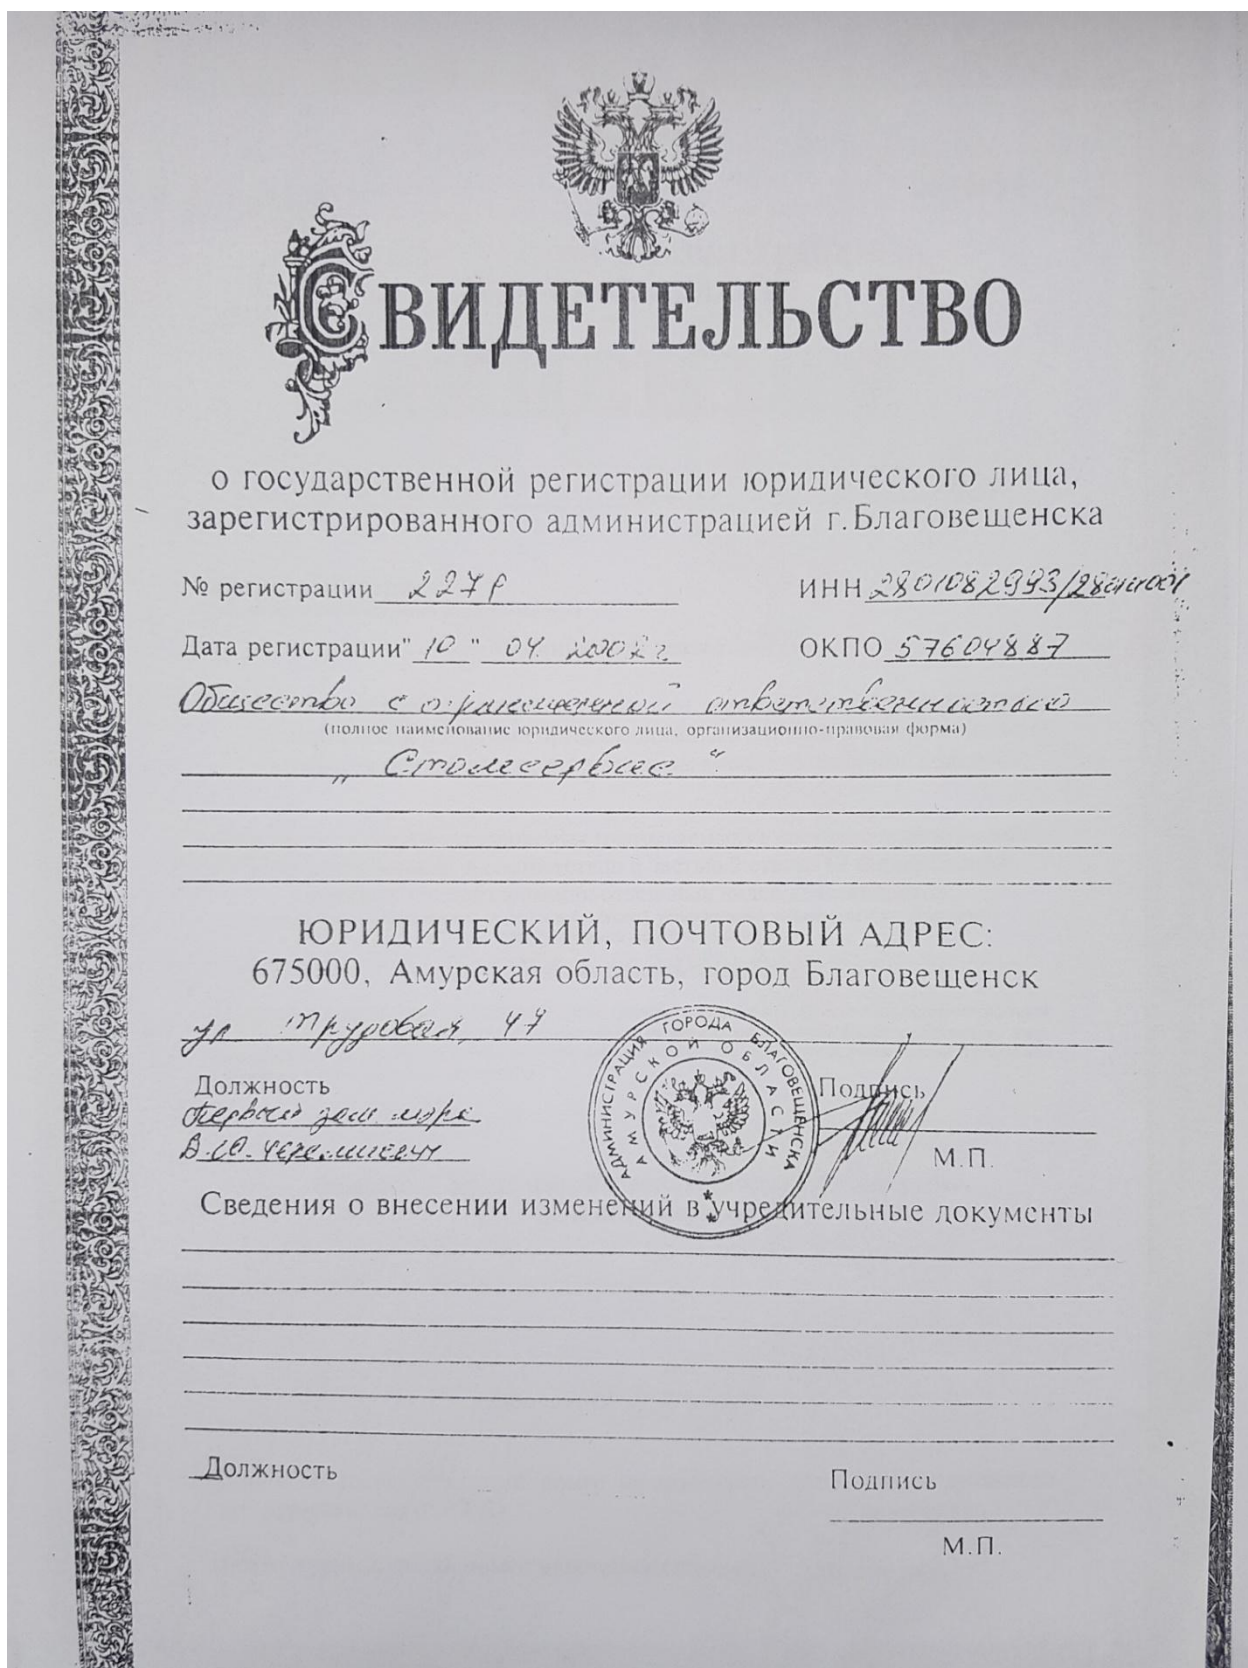 СВИДЕТЕЛЬСТВО
о государственной регистрации юридического лица,
зарегистрированного администрацией г.Благовещенска
№ регистрации 227Р ИНН 2801082993/280101001
Дата регистрации " 10 " 04. 2002г ОКПО 57604887
Общество с ограниченной ответственностью
(полное наименование юридического лица, организационно-правовая форма)
„ Стомсервис “
ЮРИДИЧЕСКИЙ, ПОЧТОВЫЙ АДРЕС:
675000, Амурская область, город Благовещенск
ул Трудовая, 47
АДМИНИСТРАЦИЯ ГОРОДА БЛАГОВЕЩЕНСКА
АМУРСКОЙ ОБЛАСТИ
Должность Подпись
Первый зам мэра
В.Ю. М.П.
Сведения о внесении изменений в учредительные документы
Должность Подпись
М.П.